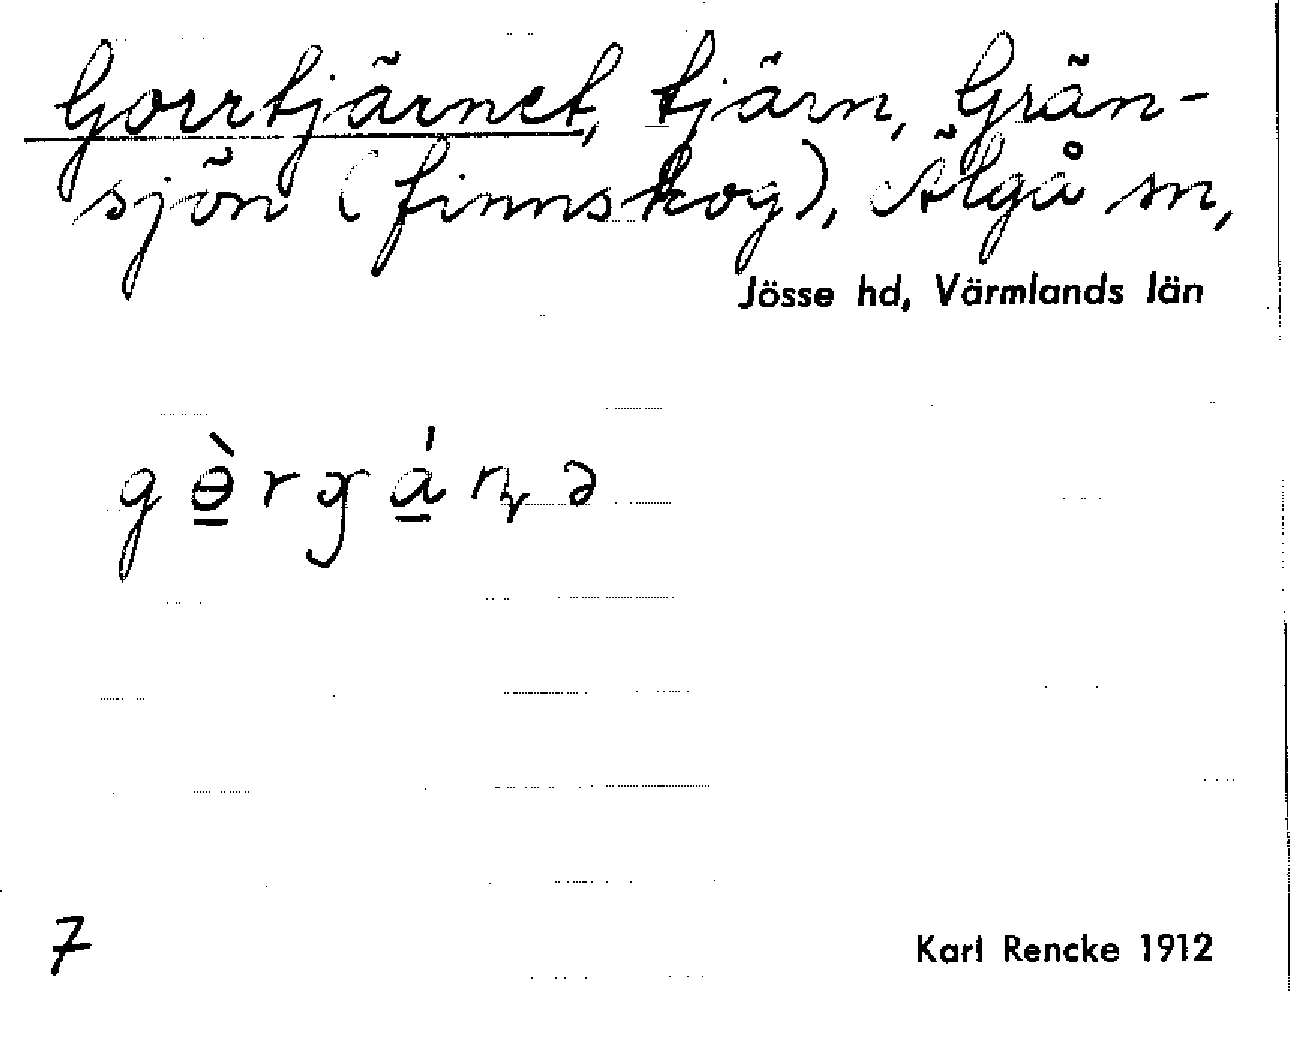 Gorrtjärnet, tjärn, Grän-
sjön (finnskog), Älgå sn,
Jösse hd, Värmlands län
7
Karl Rencke 1912